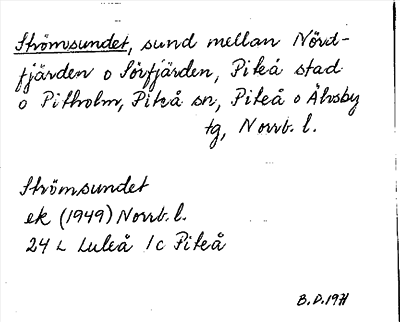 Strömsundet, sund mellan Nörd-
fjärden o Sörfjärden, Piteå stad
o Pitholm, Piteå sn, Piteå o Älvsby
tg, Norrb. l.
Strömsundet
ek (1949) Norrb. l.
24 L Luleå 1c Piteå
B.D. 1971